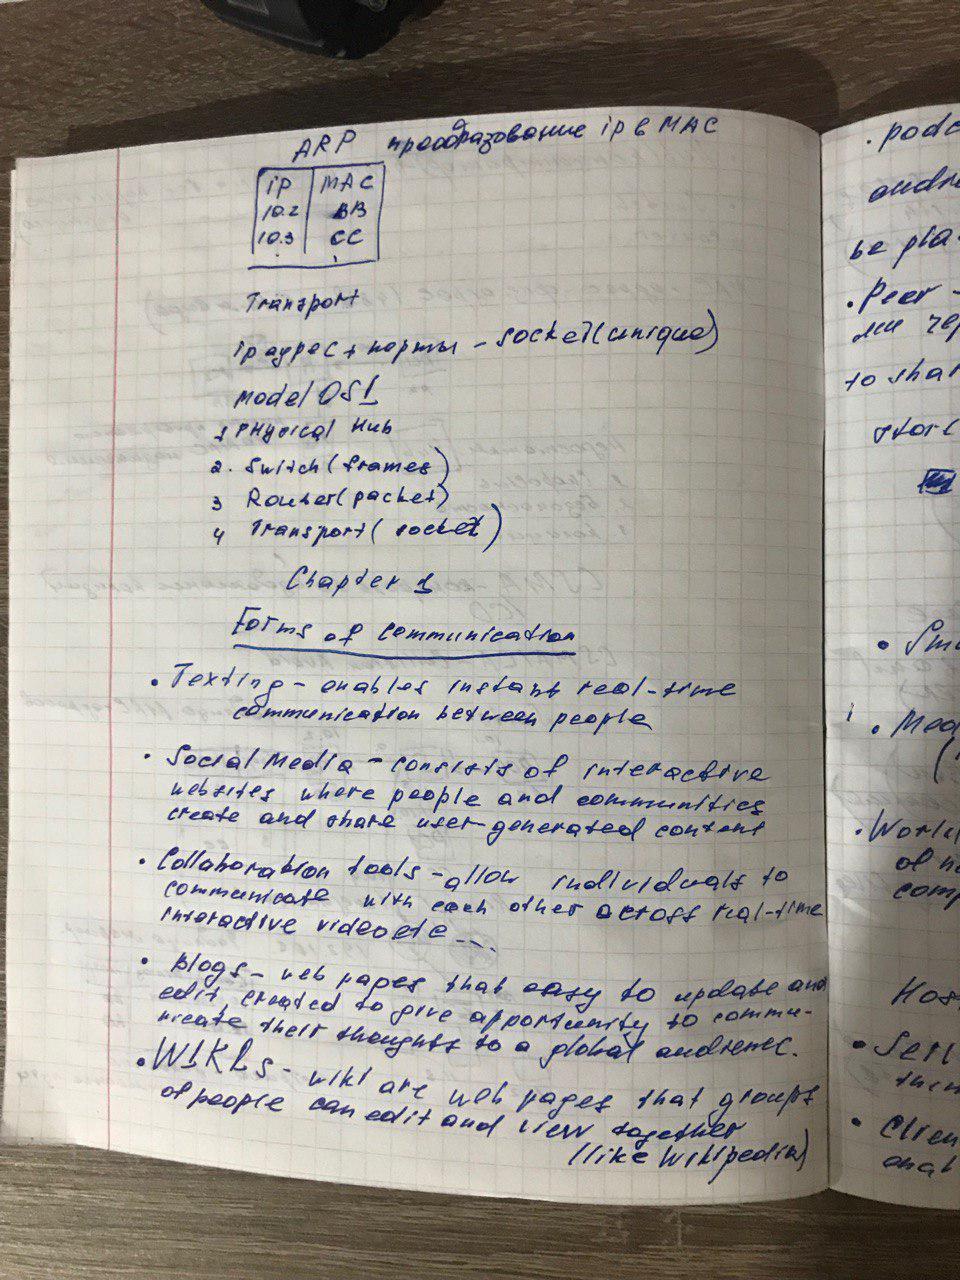 ARP преобразование ip в MAC
ip MAC
10.2 BB
10.3 CC
Transport
ip адрес + порты - socket (unique)
Model OSI
1 PHysical Hub
2. Switch (frames)
3 Router (packet)
4 Transport (socket)
Chapter 1
Forms of communication
• Texting - enables instant real-time
communication between people
• Social Media - consists of interactive
websites where people and communities
create and share user-generated content
• Collaboration tools - allow individuals to
communicate with each other across real-time
interactive video etc ...
• Blogs - web pages that easy to update and
edit, created to give apportunity to commu-
nicate their thoughts to a global audience.
• WIKIs - wiki are web pages that groups
of people can edit and view together
(like Wikipedia)
be
• Peer -
to
•
•
•
of
•
•